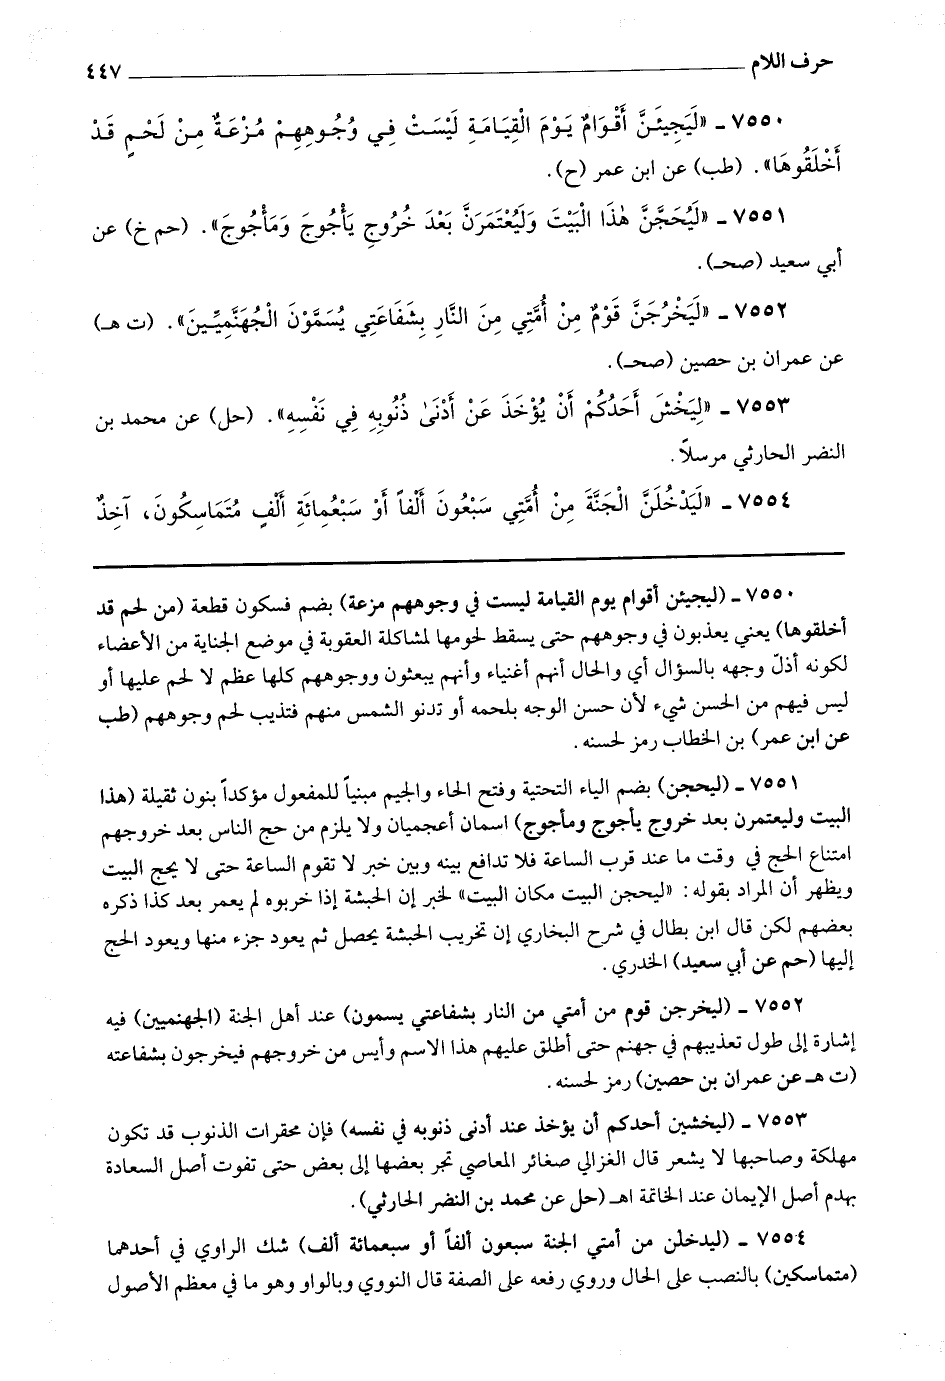 حرف اللام ــــــــــ ٤٤٧
٧٥٥٠ ـ «لَيَجِيئَنَّ أَقْوَامٌ يَوْمَ الْقِيَامَةِ لَيْسَتْ فِي وُجُوهِهِمْ مُزْعَةٌ مِنْ لَحْمٍ قَدْ
أَخْلَقُوهَا». (طب) عن ابن عمر (ح).
٧٥٥١ ـ «لَيُحَجَّنَّ هٰذَا الْبَيْتَ وَلَيُعْتَمَرَنَّ بَعْدَ خُرُوجِ يَأْجُوجَ وَمَأْجُوجَ». (حم خ) عن
أبي سعيد (صحـ).
٧٥٥٢ ـ «لَيَخْرُجَنَّ قَوْمٌ مِنْ أُمَّتِي مِنَ النَّارِ بِشَفَاعَتِي يُسَمَّوْنَ الْجُهَنَّمِيِّينَ». (ت هـ)
عن عمران بن حصين (صحـ).
٧٥٥٣ ـ «لِيَخْشَ أَحَدُكُمْ أَنْ يُؤْخَذَ عَنْ أَدْنَىٰ ذُنُوبِهِ فِي نَفْسِهِ». (حل) عن محمد بن
النضر الحارثي مرسلاً.
٧٥٥٤ ـ «لَيَدْخُلَنَّ الْجَنَّةَ مِنْ أُمَّتِي سَبْعُونَ أَلْفاً أَوْ سَبْعُمِائَةِ أَلْفٍ مُتَمَاسِكُونَ، آخِذٌ
٧٥٥٠ ـ (ليجيئن أقوام يوم القيامة ليست في وجوههم مزعة) بضم فسكون قطعة (من لحم قد
أخلقوها) يعني يعذبون في وجوههم حتى يسقط لحومها لمشاكلة العقوبة في موضع الجناية من الأعضاء
لكونه أذلّ وجهه بالسؤال أي والحال أنهم أغنياء وأنهم يبعثون ووجوههم كلها عظم لا لحم عليها أو
ليس فيهم من الحسن شيء لأن حسن الوجه بلحمه أو تدنو الشمس منهم فتذيب لحم وجوههم (طب
عن ابن عمر) بن الخطاب رمز لحسنه.
٧٥٥١ ـ (ليحجن) بضم الياء التحتية وفتح الحاء والجيم مبنياً للمفعول مؤكداً بنون ثقيلة (هذا
البيت وليعتمرن بعد خروج يأجوج ومأجوج) اسمان أعجميان ولا يلزم من حج الناس بعد خروجهم
امتناع الحج في وقت ما عند قرب الساعة فلا تدافع بينه وبين خبر لا تقوم الساعة حتى لا يحج البيت
ويظهر أن المراد بقوله: «ليحجن البيت مكان البيت» لخبر إن الحبشة إذا خربوه لم يعمر بعد كذا ذكره
بعضهم لكن قال ابن بطال في شرح البخاري إن تخريب الحبشة يحصل ثم يعود جزء منها ويعود الحج
إليها (حم عن أبي سعيد) الخدري.
٧٥٥٢ ـ (ليخرجن قوم من أمتي من النار بشفاعتي يسمون) عند أهل الجنة (الجهنميين) فيه
إشارة إلى طول تعذيبهم في جهنم حتى أطلق عليهم هذا الاسم وأيس من خروجهم فيخرجون بشفاعته
(ت هـ عن عمران بن حصين) رمز لحسنه.
٧٥٥٣ ـ (ليخشين أحدكم أن يؤخذ عند أدنى ذنوبه في نفسه) فإن محقرات الذنوب قد تكون
مهلكة وصاحبها لا يشعر قال الغزالي صغائر المعاصي تجر بعضها إلى بعض حتى تفوت أصل السعادة
بهدم أصل الإيمان عند الخاتمة اهـ (حل عن محمد بن النضر الحارثي).
٧٥٥٤ ـ (ليدخلن من أمتي الجنة سبعون ألفاً أو سبعمائة ألف) شك الراوي في أحدهما
(متماسكين) بالنصب على الحال وروي رفعه على الصفة قال النووي وبالواو وهو ما في معظم الأصول